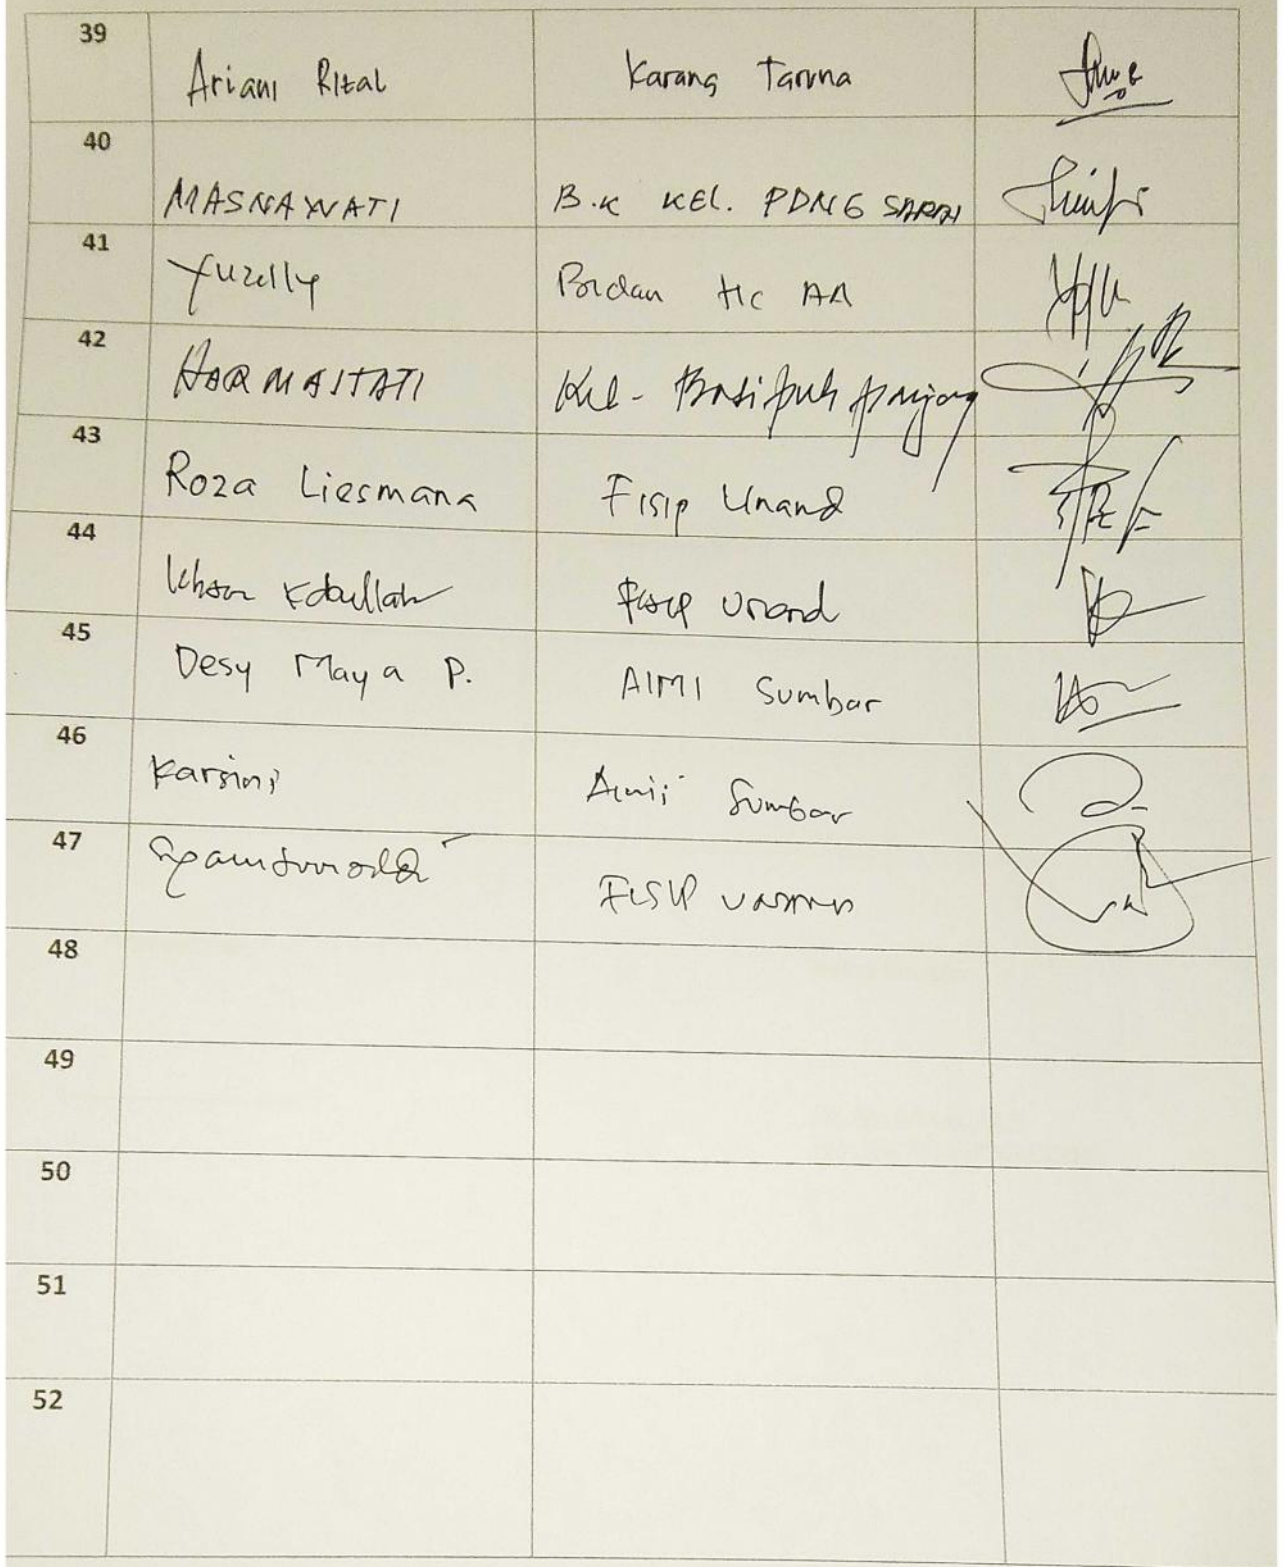 39 Ariani Rizal Karang Taruna
40 MASNAWATI B.K KEL. PDNG SARAI
41 Yuzelly Bidan HC AA
42 HARMAITATI Kel - Pasipuh panjang
43 Roza Liesmana Fisip Unand
44 Fisip Unand
45 Desy Maya P. AIMI Sumbar
46 Karsini Aimi Sumbar
47 FISIP
48
49
50
51
52